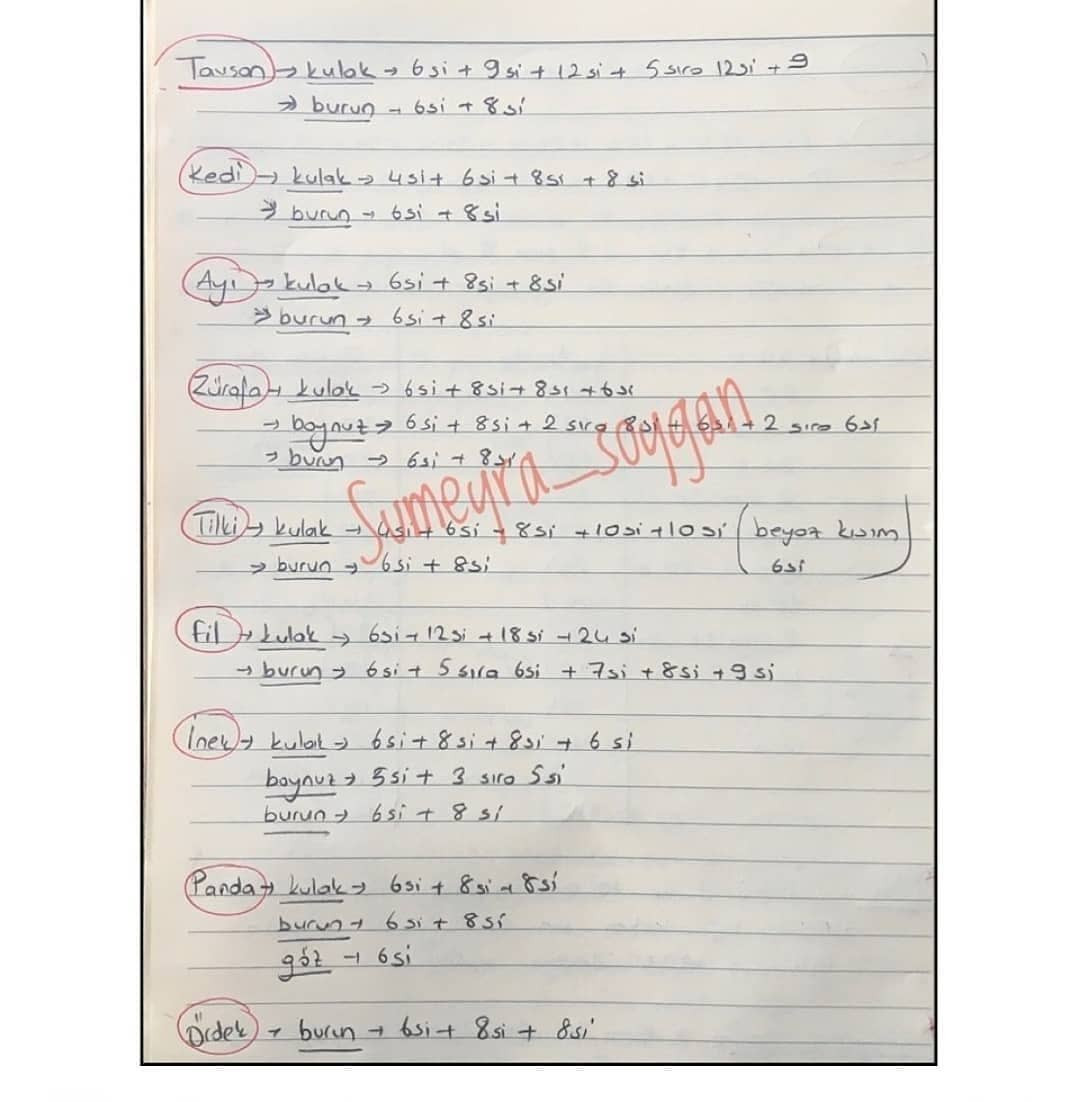 Tavşan → kulak → 6si + 9si + 12si + 5 sıra 12si + 9
→ burun → 6si + 8si
Kedi → kulak → 4si + 6si + 8si + 8si
→ burun → 6si + 8si
Ayı → kulak → 6si + 8si + 8si
→ burun → 6si + 8si
Zürafa → kulak → 6si + 8si + 8si + 6si
→ boynuz → 6si + 8si + 2 sıra 8si + 6si + 2 sıra 6si
→ burun → 6si + 8si
Sumeyra_soygan
Tilki → kulak → 4si + 6si + 8si + 10si + 10si (beyaz kısım
6si)
→ burun → 6si + 8si
Fil → kulak → 6si + 12si + 18si + 24si
→ burun → 6si + 5 sıra 6si + 7si + 8si + 9si
İnek → kulak → 6si + 8si + 8si + 6si
boynuz → 5si + 3 sıra 5si
burun → 6si + 8si
Panda → kulak → 6si + 8si + 8si
burun → 6si + 8si
göz → 6si
Ördek → burun → 6si + 8si + 8si